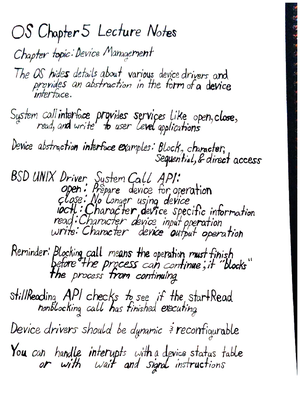 OS Chapter 5 Lecture Notes
Chapter topic: Device Management
The OS hides details about various device drivers and
provides an abstraction in the form of a device
interface.
System call interface provides services like open, close,
read, and write to user level applications
Device abstraction interface examples: Block, character,
Sequential, & direct access
BSD UNIX Driver System Call API:
open: Prepare device for operation
close: No longer using device
ioctl: Character device specific information
read: Character device input operation
write: Character device output operation
Reminder: Blocking call means the operation must finish
before the process can continue, it "blocks"
the process from continuing
stillReading API checks to see if the startRead
nonblocking call has finished executing
Device drivers should be dynamic & reconfigurable
You can handle interupts with a device status table
or with wait and signal instructions